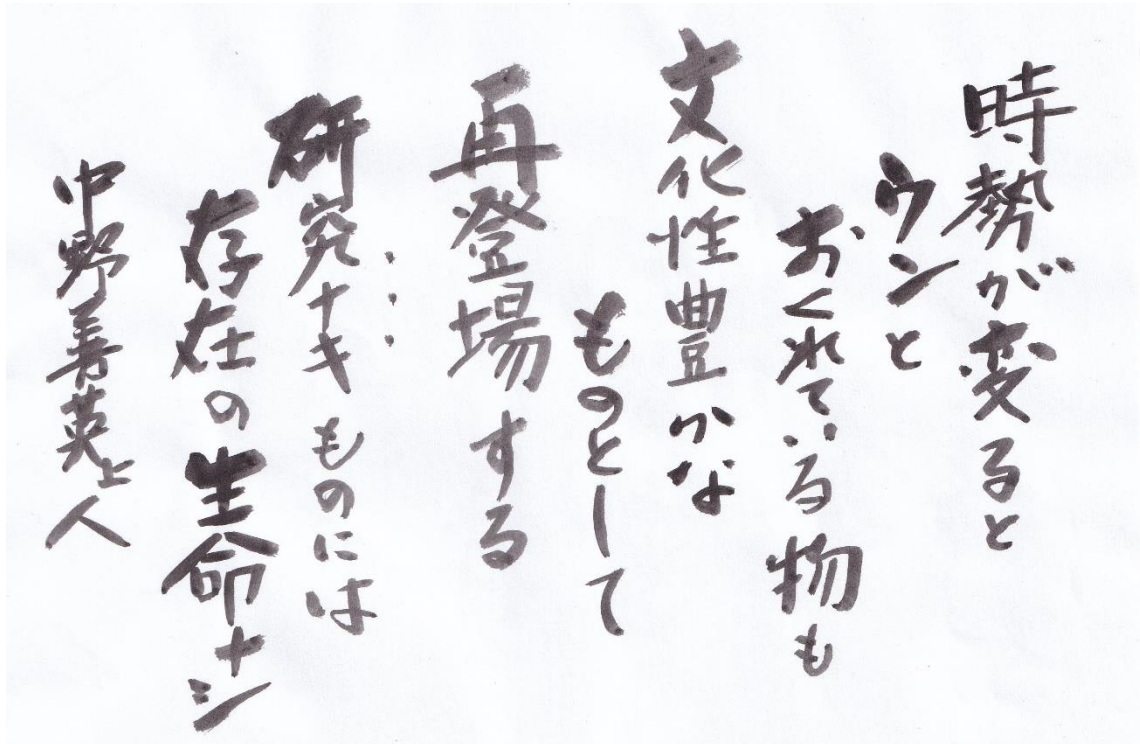 時勢が変ると
ウンと
おくれている物も
文化性豊かな
ものとして
再登場する
・・・
研究ナキものには
存在の生命ナシ
中野善英上人